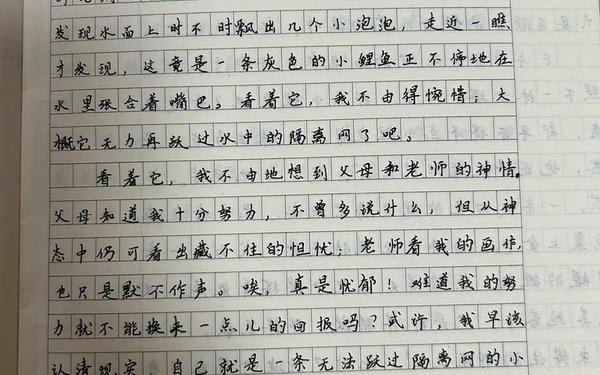 发现水面上时不时飘出几个小泡泡，走近一瞧
才发现，这竟是一条灰色的小鲤鱼正不停地在
水里张合着嘴巴。看着它，我不由得惋惜；大
概它无力再跃过水中的隔离网了吧。
看着它，我不由地想到父母和老师的神情。
父母知道我十分努力，不曾多说什么，但从神
态中仍可看出藏不住的担忧；老师看我的画作，
也只是默不作声。唉，真是忧郁！难道我的努
力就不能换来一点儿的回报吗？或许，我早该
认清现实，自己就是一条无法跃过隔离网的小